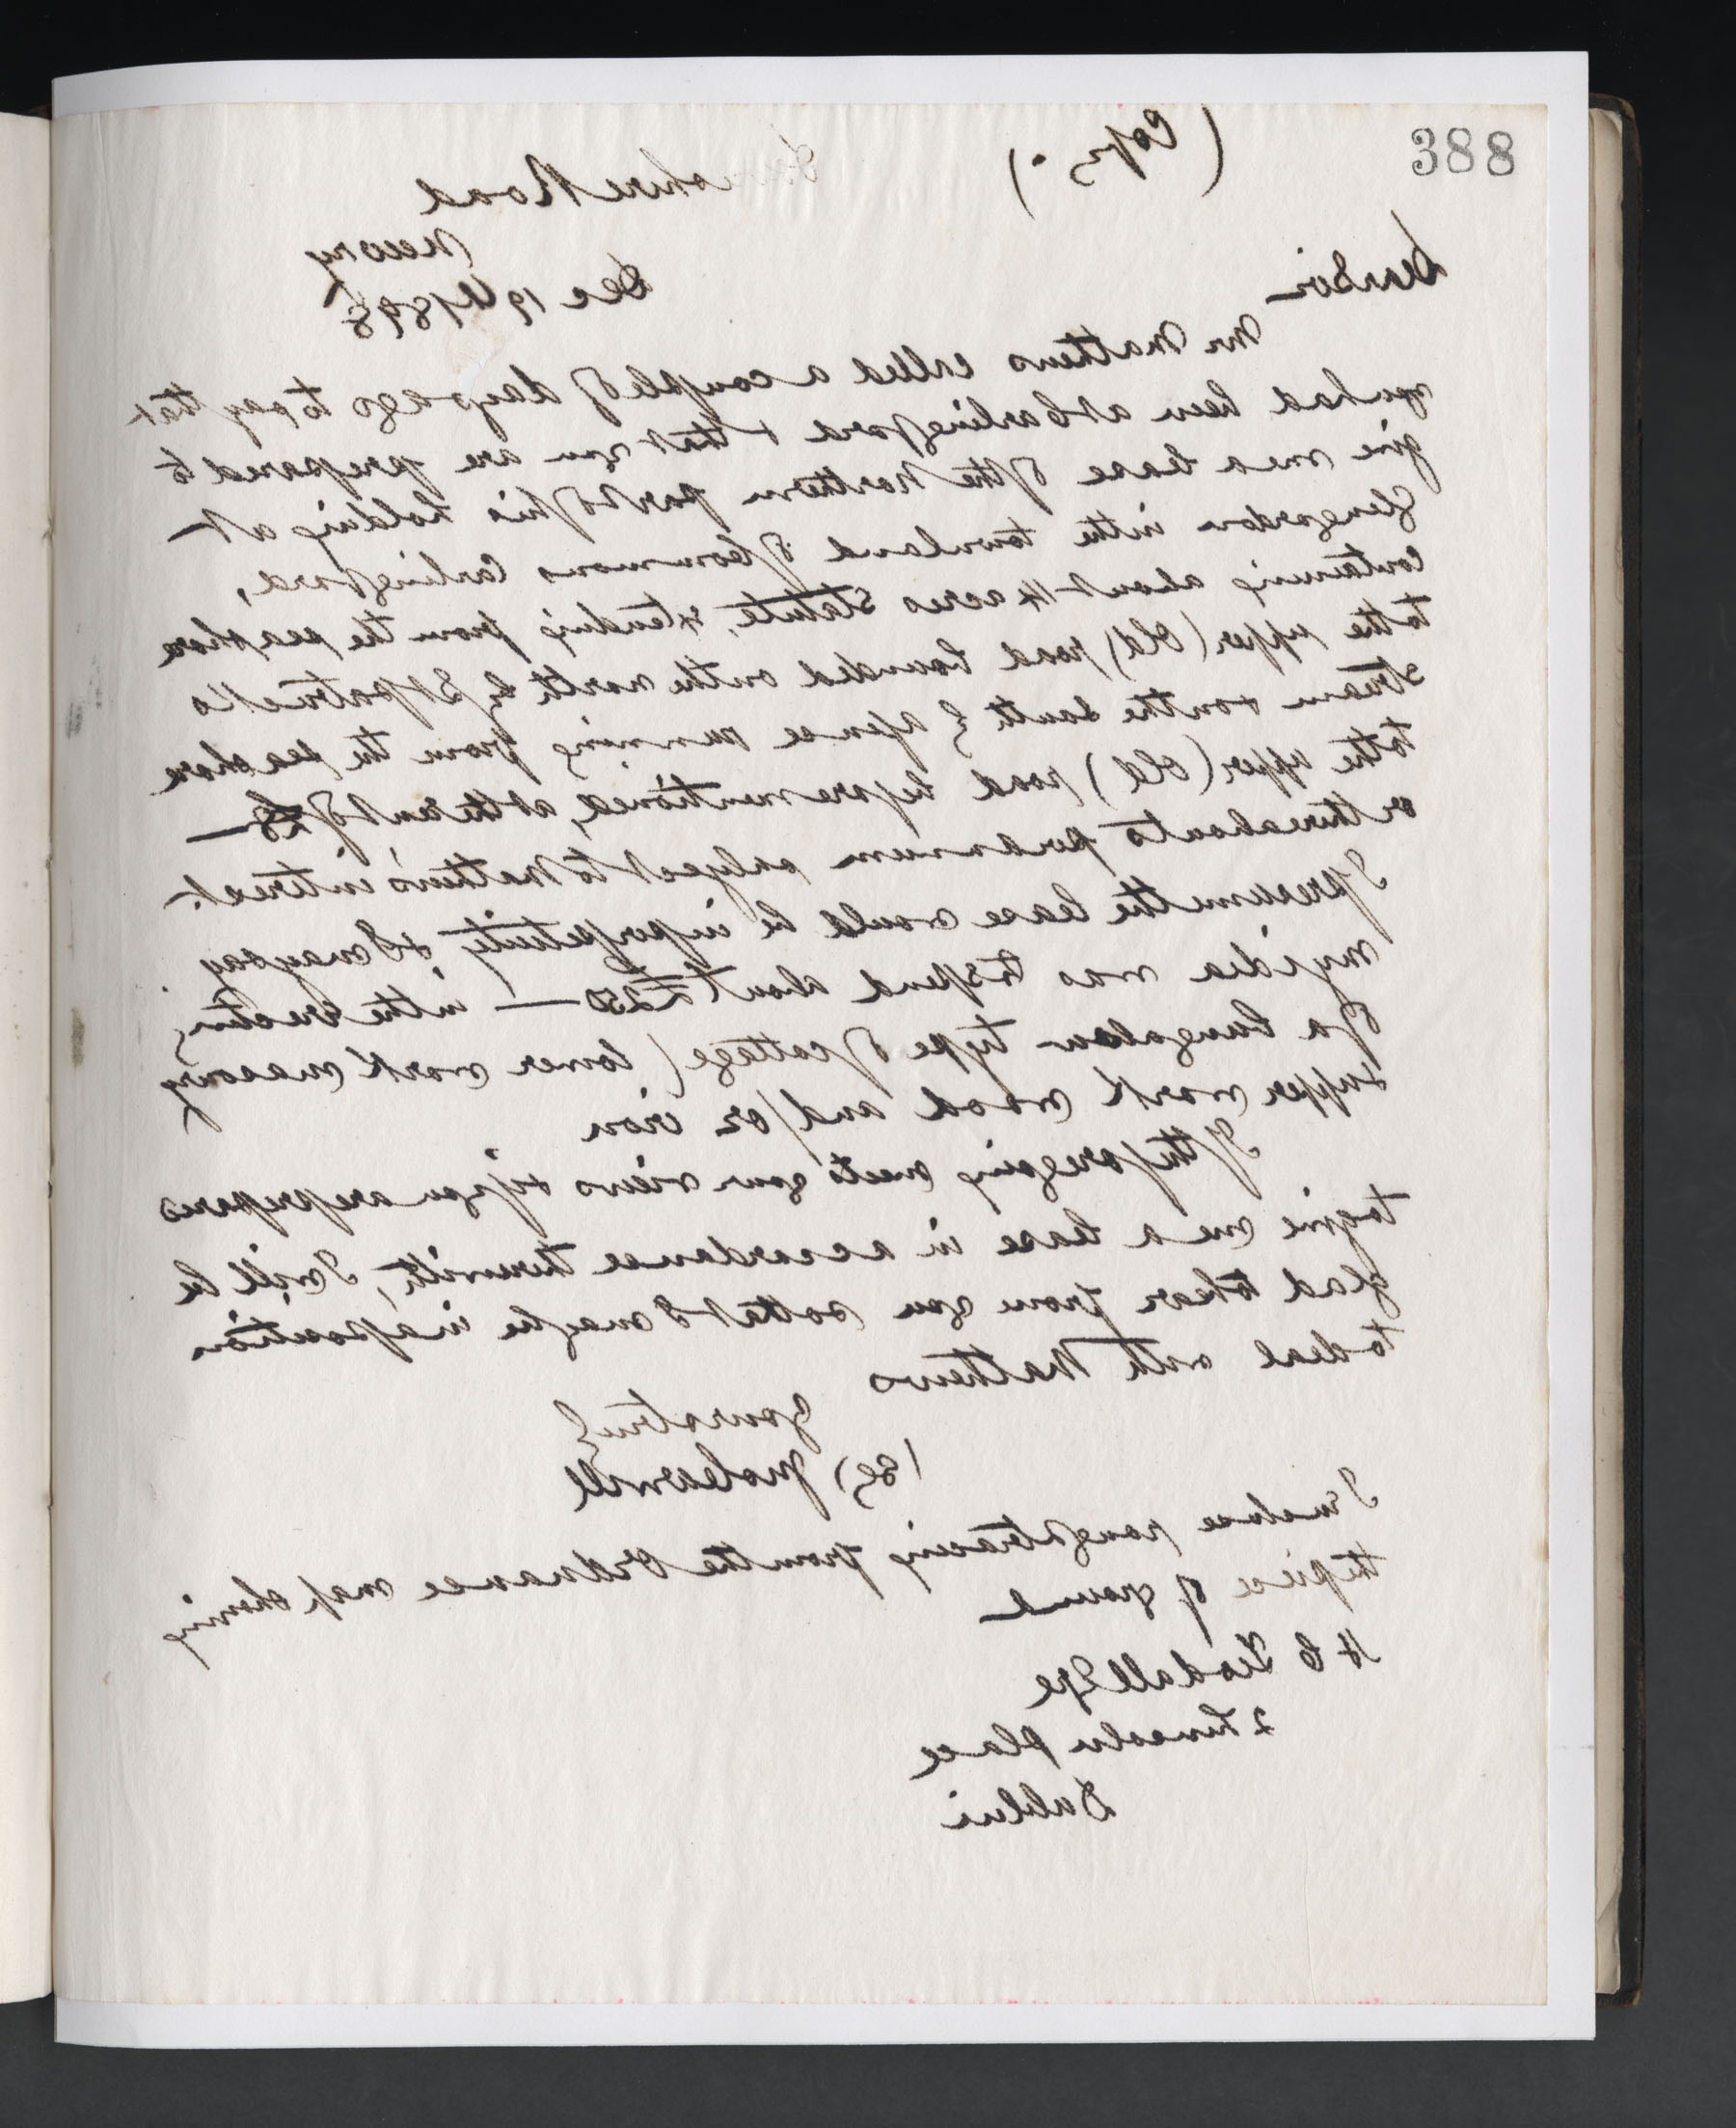 388
(Copy.)
Road
Newry
Dec 19th 1898
Dear Sir
Mr Mathews called a couple of days ago to say that
you had been at Carlingford & that you are prepared to
give me a lease of the Northern part of his holding at
Glengordon in the townland of Commons Carlingford,
containing about 14 acres statute, extending from the sea shore
to the upper (old) road bounded on the north by St patricks
stream & on the south by a fence running from the sea shore
to the upper (old) road beforementioned, at the rent of £8 —
or thereabouts per annum subject to Mathews interest.
I presume the lease would be in perpetuity & I may say
my idea was to spend about £250 — in the erection
of a bungalow type of cottage (lower work masonry
& upper work wood and/or iron
If the foregoing meets your views & if you are prepared
to give me a lease in accordance therewith, I will be
glad to hear from you so that I may be in a position
to deal with Mathews
yours truly
(Sg)
I enclose rough tracing from the Ordnance map showing
the piece of ground
H C Tisdall Esqe
2 Lincoln place
Dublin